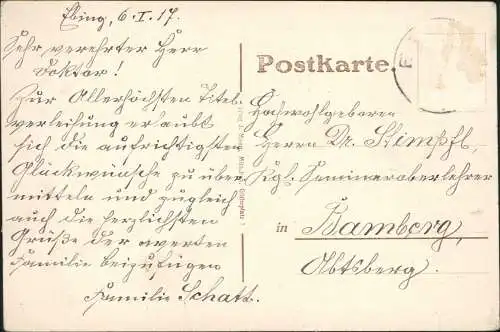 Ebing, 6.I.17.
Sehr verehrter Herr
Doktor!
Zur Allerhöchsten Titel-
verleihung erlaubt
sich die aufrichtigsten
Glückwünsche zu über-
mitteln und zugleich
auch die herzlichsten
Grüße der werten
Familie beizufügen
Familie Schatt.
Postkarte.
Hochwohlgeboren
Herrn Dr. Stimpfl,
Kgl. Seminaroberlehrer
in Bamberg,
Abtsberg.